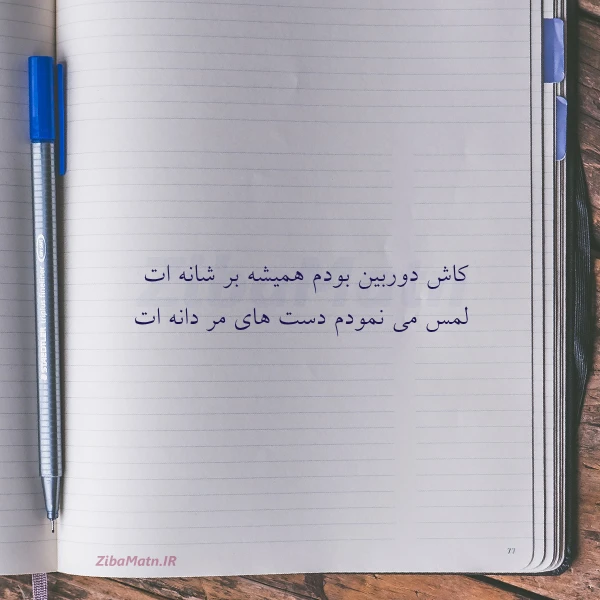 کاش دوربین بودم همیشه بر شانه ات
لمس می نمودم دست های مر دانه ات
77
ZibaMatn.IR